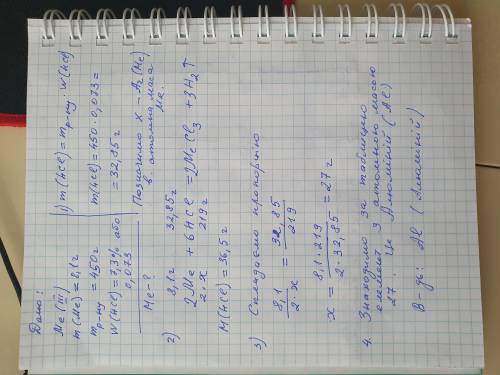 Дано:
Me (III)
m(Me) = 8,1 г
mр-ну = 450 г
W(HCl) = 7,3% або
0,073
Me - ?
1) m(HCl) = mр-ну · W(HCl)
m(HCl) = 450 · 0,073 =
= 32,85 г
Позначимо X – Ar(Me)
атомна маса
Ме.
2) 8,1 г 32,85 г
2Me + 6HCl = 2MeCl3 + 3H2↑
2·x 219 г
M(HCl) = 36,5 г
3) Складаємо пропорцію
8,1 / 2·x = 32,85 / 219
x = 8,1·219 / 2·32,85 = 27 г
4. Знаходимо за таблицею
елемент з атомною масою
27. Це Алюміній (Al)
В-дь: Al (Алюміній)